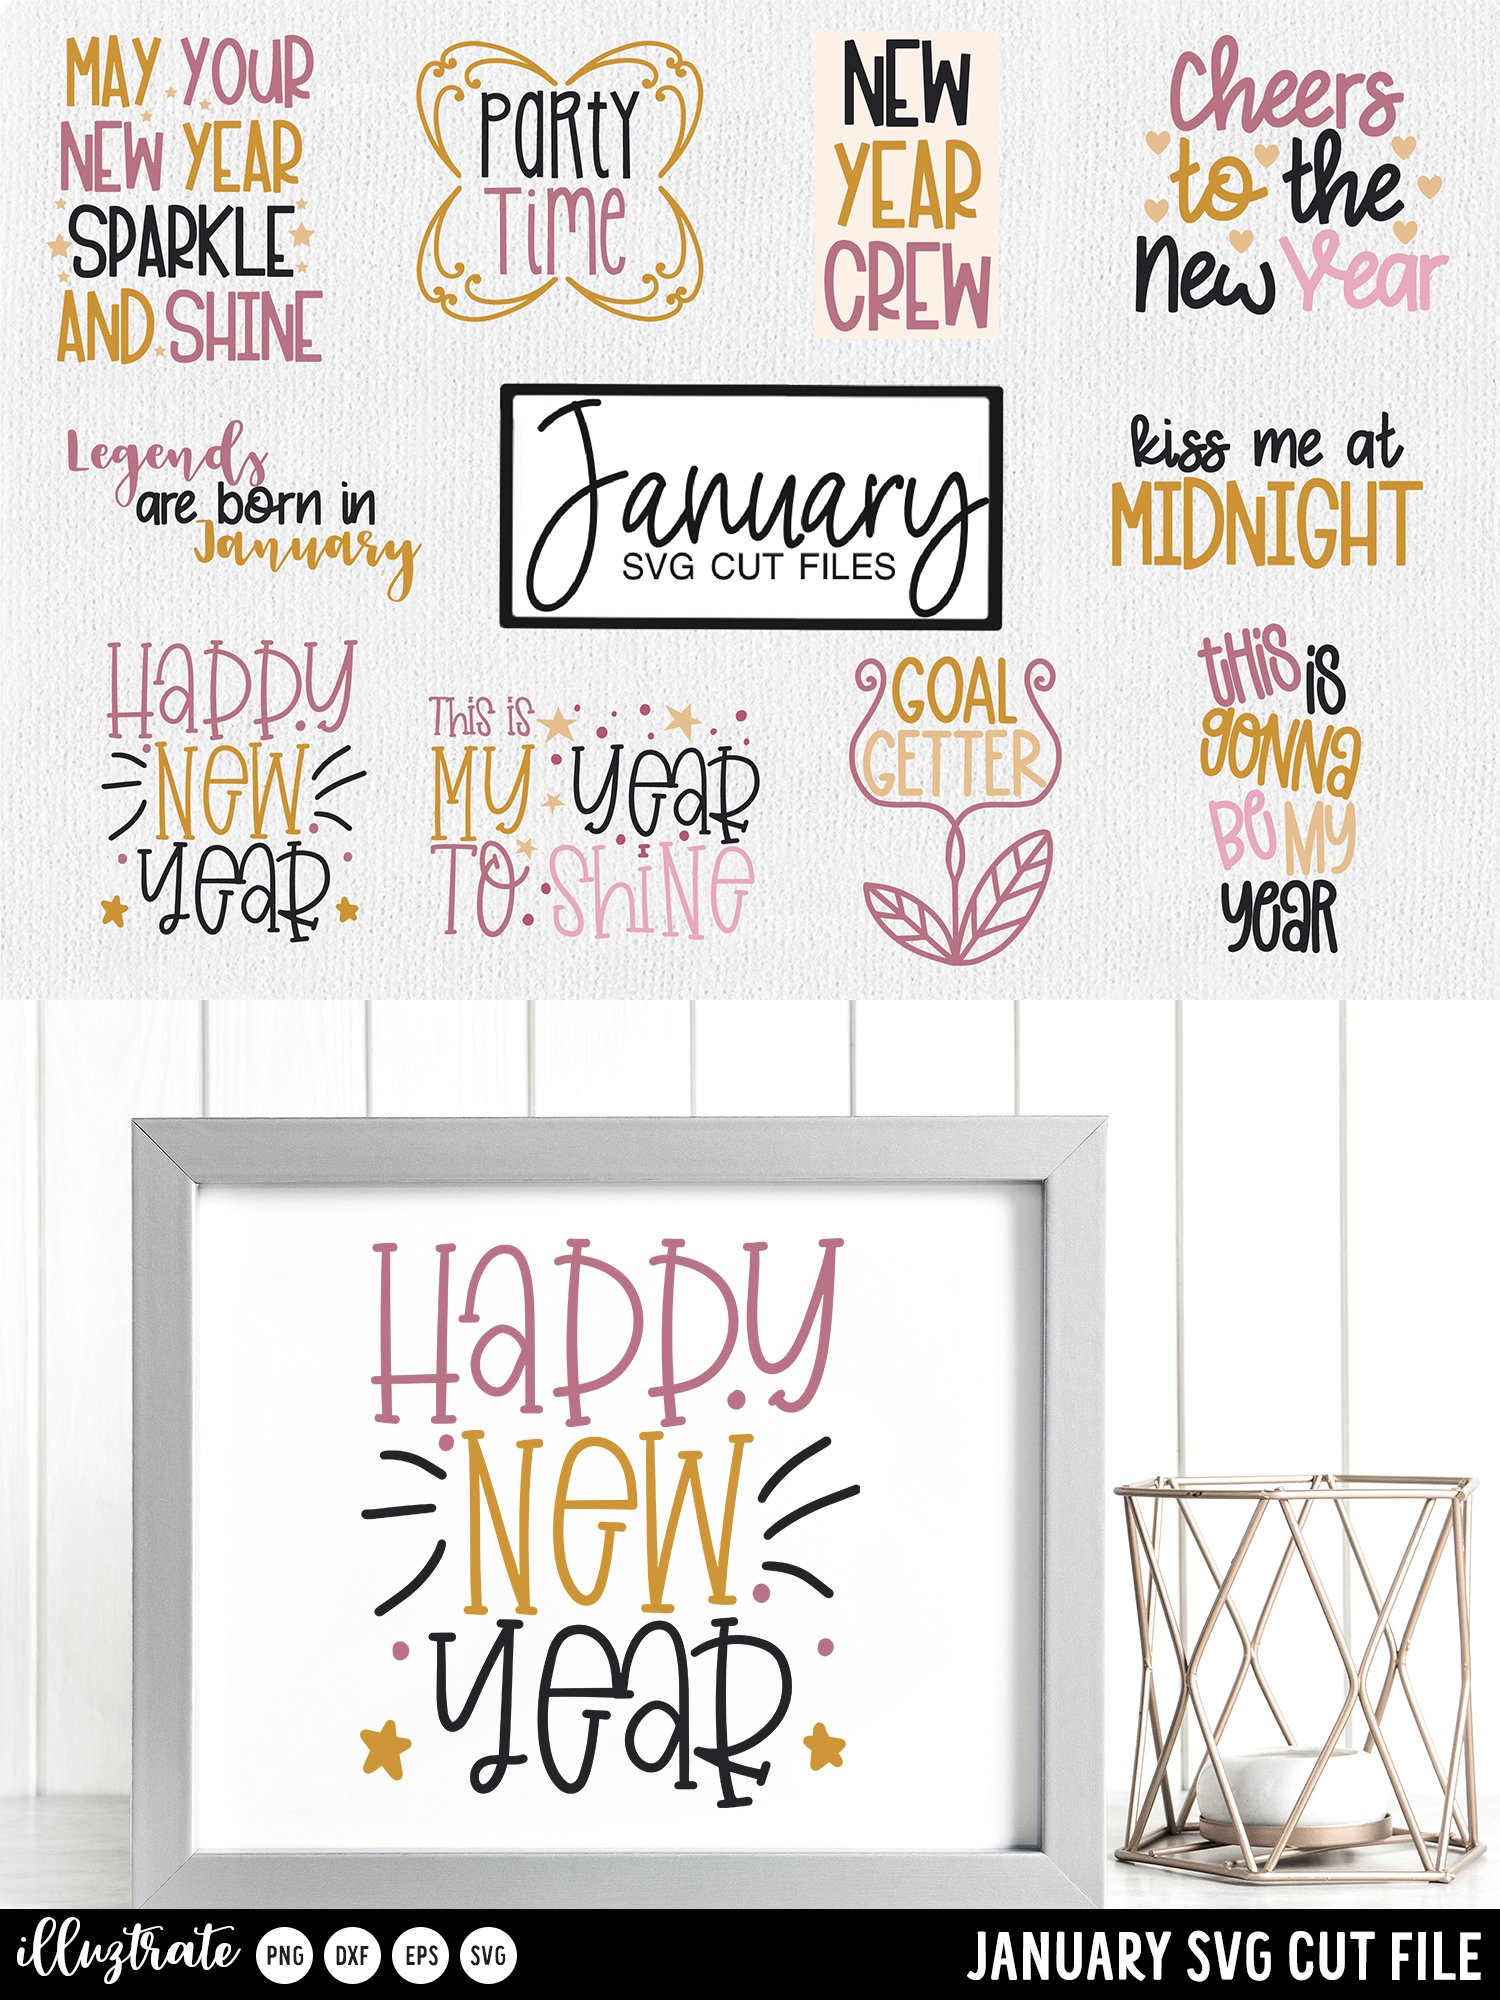 MAY YOUR
NEW YEAR
SPARKLE
AND SHINE
PARTY
TIME
NEW
YEAR
CREW
Cheers
to the
New Year
Legends
are born in
January
January
SVG CUT FILES
kiss me at
MIDNIGHT
HAPPY
NEW
YEAR
THIS IS
MY YEAR
TO SHINE
GOAL
GETTER
THIS IS
GONNA
BE MY
YEAR
HAPPY
NEW
YEAR
illuztrate PNG DXF EPS SVG
JANUARY SVG CUT FILE